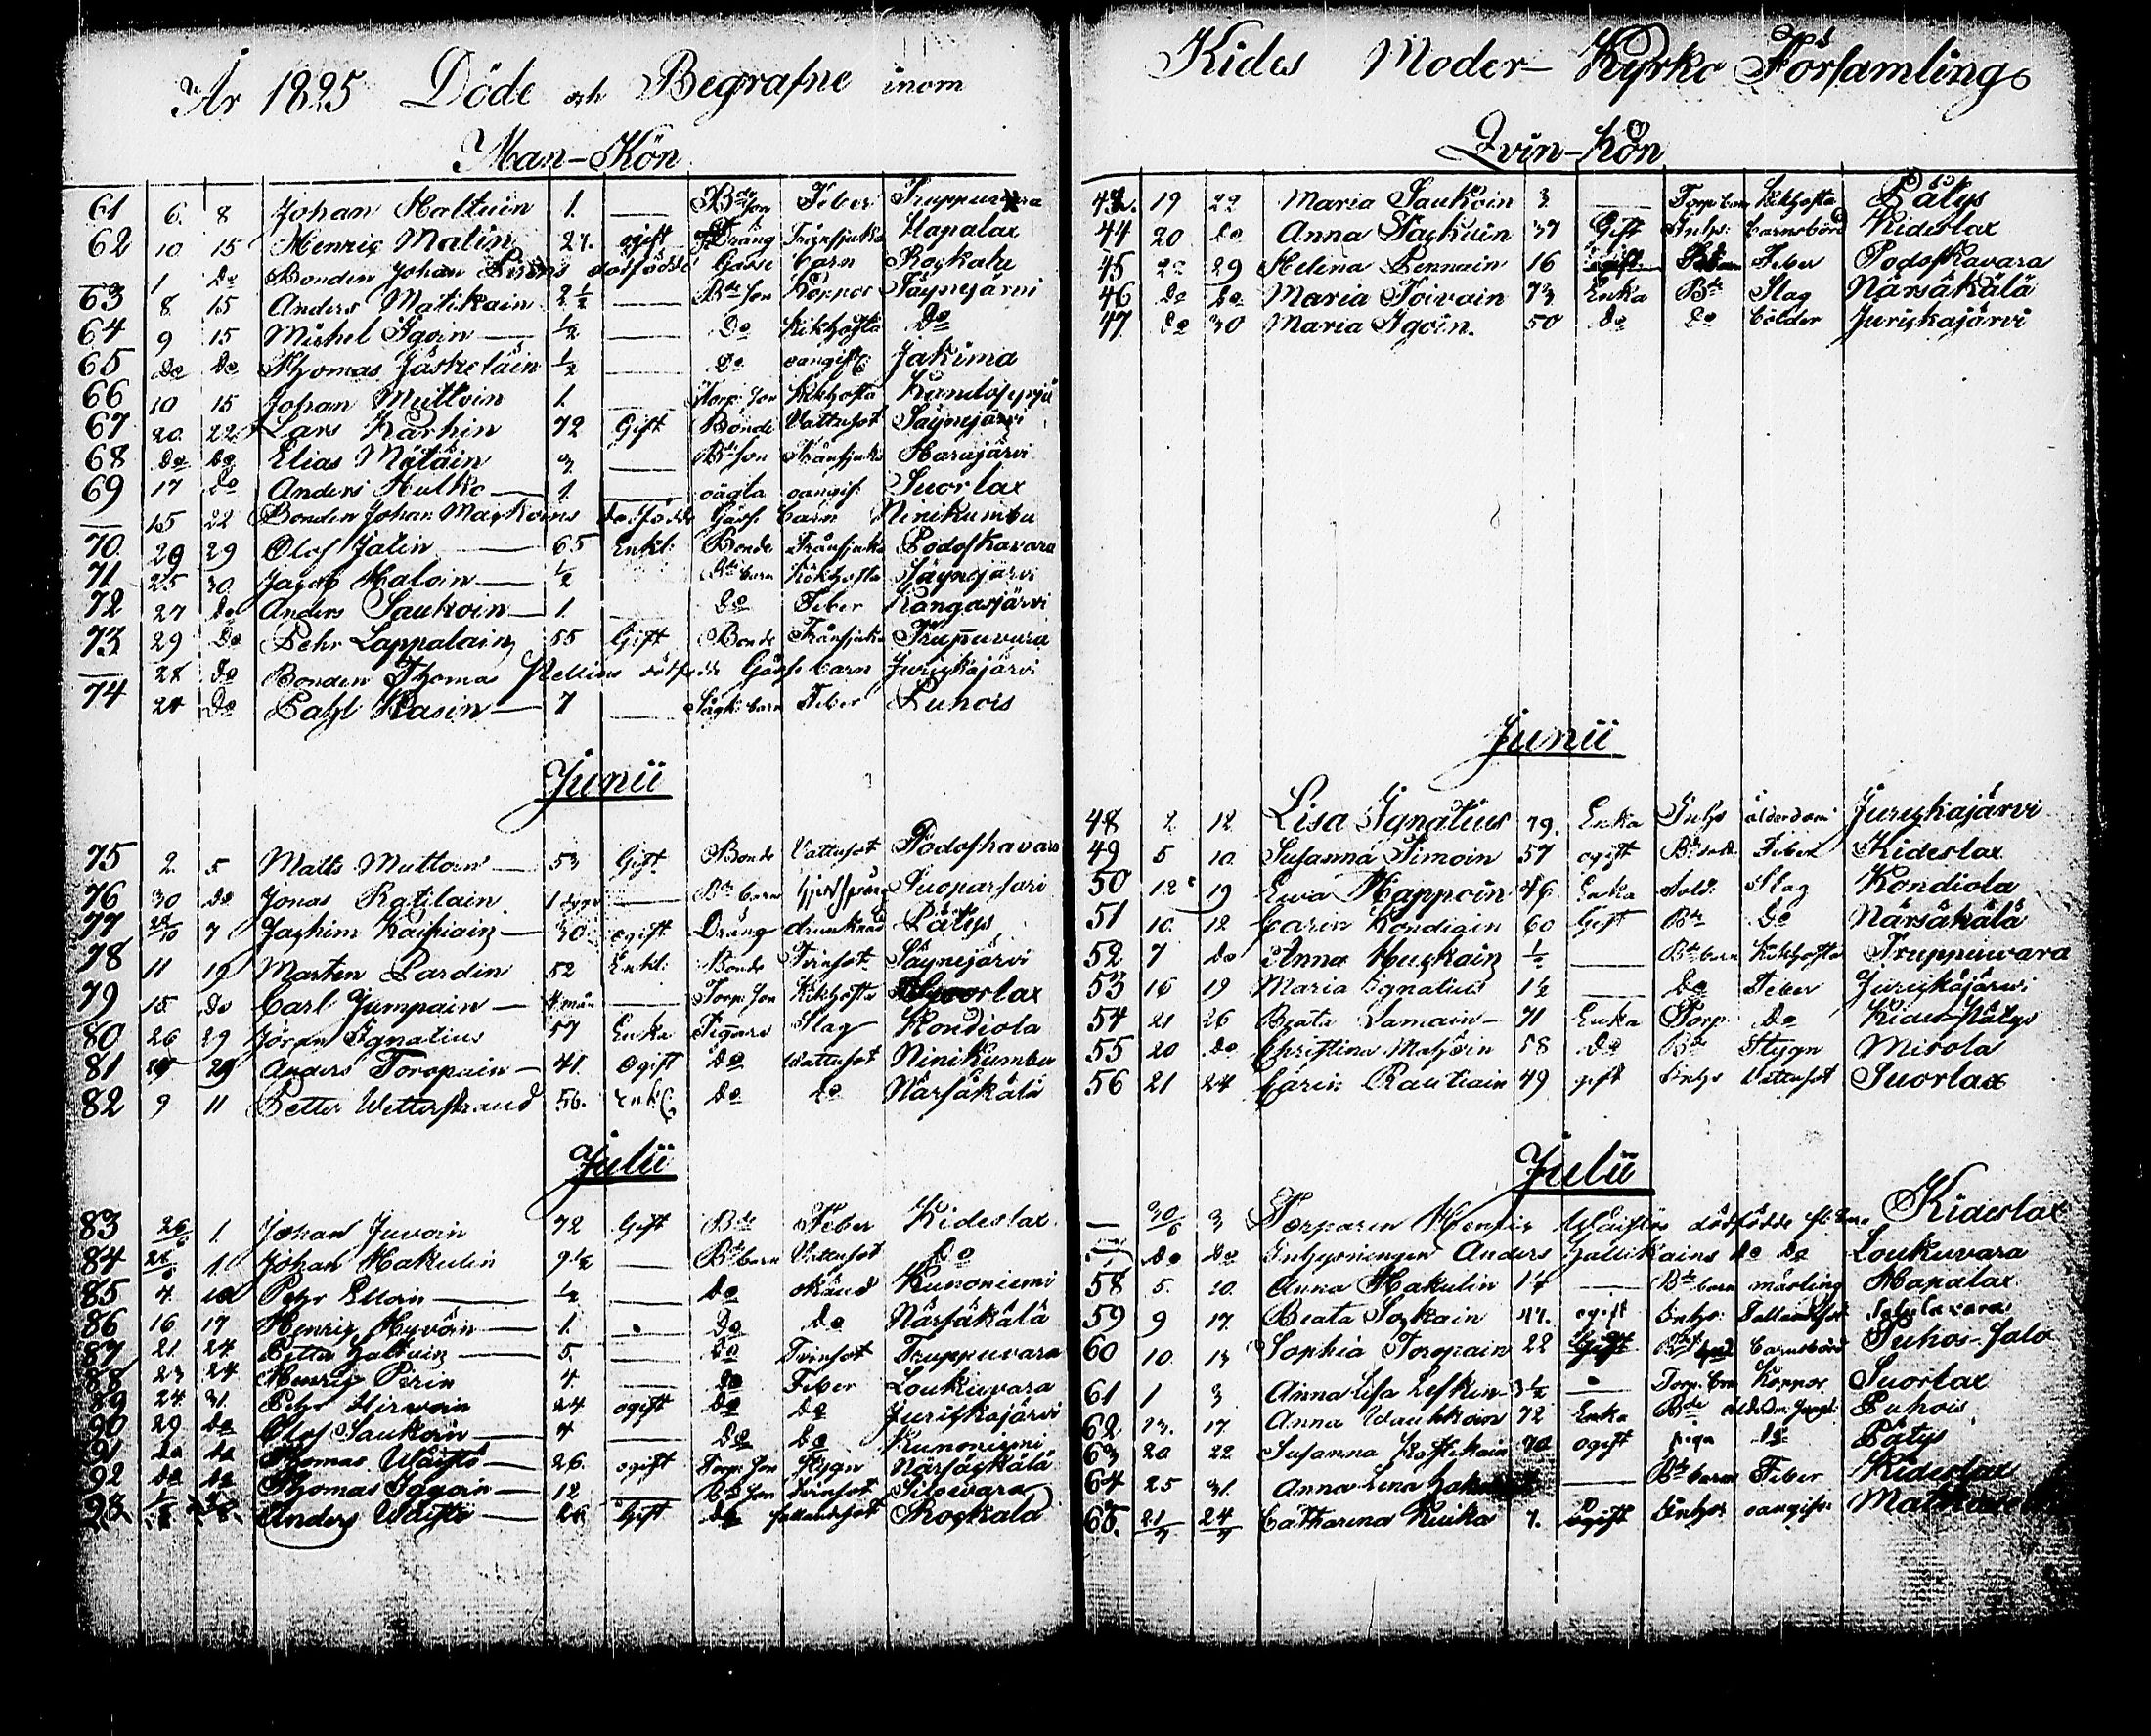 År 1825 Döde och Begrafne inom
Man-Kön
61 6. 8 Johan Maltuin 1. — Bde Son Feber Truppuvara
62 10 15 Henric Malin 27. ogift Dräng Trånsjuka Hapalax
— 1 Do Bonden Johan dödfödde Gosse barn Roskala
63 8 15 Anders Matikain 2 1/2 — Bde Son Koppor Säynejärvi
64 9 15 Michel Igoin — 1/2 — Do Kikhosta Do
65 Do Do Thomas Jäskeläin 1/2 — Do oangif: Jakima
66 10 15 Johan Muttoin 1. — Torp: Son Kikhosta
67 20 22 Lars Karhin 72 Gift Bonde Vattusot Säynejärvi
68 Do Do Elias Möläin 3 — Bde Son Trånsjuka Harajärvi
69 17 Do Anders Hulko — 1. — oägta oangif: Suorlax
— 15 22 Bonden Johan dödfödde Gosse barn Ninikumbu
70. 29 29 Olof Jalin — 65 Enkl: Bonde Trånsjuka Podoskavara
71 25 30. Jacob Maloin — 1/2 Bde barn Kikhosta Säynejärvi
72 27 do Anders Saukoin — 1. — Do Feber Kangasjärvi
73 29 Do Pehr Lappalain 55 Gift Bonde Trånsjuka Truppuvara
— 28 do Bonden Thomas dödfödde Gosse barn Juriskajärvi
74 24 Do Pahl Kasin — 7 — barn Feber Puhois
Junii
75 2. 5 Matts Muttoin — 53 Gift Bonde Vattusot Podoskavara
76 30 do Jonas Ratilain 1 — Bde barn Suoparsari
77 7 Jachim Kaipiain — 30 ogift Dräng drunknad Pätys
78 11 19 Marten Pardin 52 Enkl: Bonde Tvinsot Säynejärvi
79 15 Do Carl Jumpain — 4 mån — Torp: Son Kikhosta Suorlax
80 26 29 Jöran Ignatius 57 Enka Tiggare Slag Kondiola
81 29 Anders Toropain — 41. Ogift Do Wattusot Ninikumbu
82 9 11 Petter Wetterstrand 56. Enkl: Do Do Närsäkälä
Julii
83 26/6 1. Johan Juvoin 72 Gift Bde Feber Kideslax
84 1. Johan Hakulin 9 1/2 — Bde barn Vattusot Do
85 4. 10 Pehr Elloin — 1/2 — Do okänd Kunoniemi
86 16 17 Henric Hyvöin — 1. — Do Do Närsäkälä
87 21 24 Petter — 5. — Do Tvinsot Truppuvara
88 23 24 Henric Perin 4. — Do Feber Loukuvara
89 24 31. Pehr Hirvoin 24 ogift Do Do Juriskajärvi
90 29 do Olof Saukoin — 4 — Do Do Kunoniemi
91 Do Do Thomas Waistö — 26 ogift Torp: Son Stygn Närsäkälä
92 Do Do Thomas Igoin — 12 — Bde Son Tvinsot
93. Anders Waistö — 26 Gift Do fallandesot Roskala
Kides Moder-Kyrko Församlings
Qvin-Kön
43. 19 22 Maria Saukoin 3 — Torp: barn Kikhosta Pätys
44 20 do Anna 37 Gift Inhys: barnsbörd Kideslax
45 22 29 Helena Pennain 16 ogift Feber Podoskavara
46 Do Do Maria Toivain 73 Enka Bde Slag Närsäkälä
47 Do 30 Maria Igoin. 50 Do Do Juriskajärvi
Junii
48 2 12 Lisa Ignatius 79. Enka Inhys ålderdom Juriskajärvi
49 5 10. Susanna Simoin 57 ogift Feber Kideslax
50 12 19 Ewa Happoin 46. Enka Sold: Slag Kondiola
51 10. 12 Carin Kondiain 60 Gift Bde Do Närsäkälä
52 7 do Anna Huskain 1/2 — Bde barn Kikhosta Truppuwara
53 16 19 Maria Ignatius 1 1/2 — Do Feber Juriskajärvi
54 21 26 Beata Lamain — 71 Enka Torp: Do
55 20 do Christina 58 do Bde Stygn Mirola
56 21 24 Carin Rautiain 49 gift Inhys Vattusot Suorlax
Julii
— 30/6 3 Torparen Henric Waistös dödfödde Kideslax
— Do Do Inhysningen Anders Do Do Loukuvara
58 5. 10. Anna Hakulin 14 — Bde barn mässling Hapalax
59 9 17 Beata 47. ogift Inhys: Fallandesot
60 10. 13 Sophia Toropain 22 Gift barnsbörd
61 1 3 Anna Lisa Leskin 3 1/2 — Torp: barn Koppor Suorlax
62 13. 17 Anna Wauhkoin 72 Enka Bde Puhois
63 20 22 Susanna 70 ogift piga Do Pätys
64 25 31. Anna Lena — Bde barn Feber Kideslax
65. 21/7 24/7 Catharina Kuika 7. ogift Inhys oangif: